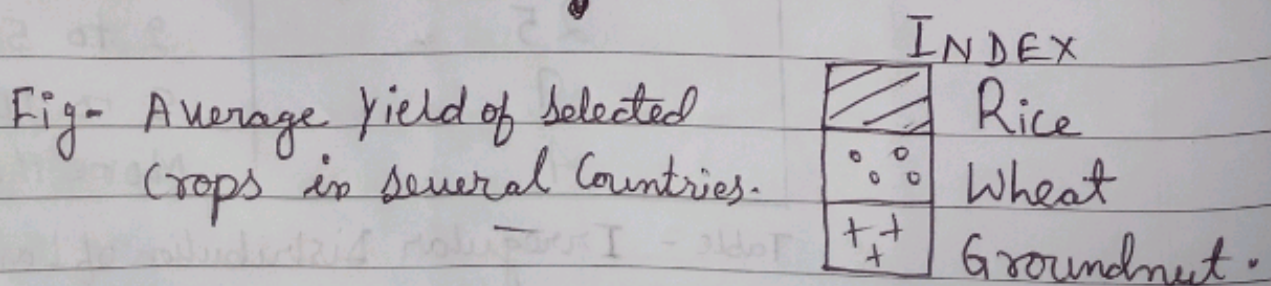 INDEX
Fig- Average Yield of Selected
Crops in several Countries.
Rice
Wheat
Groundnut.